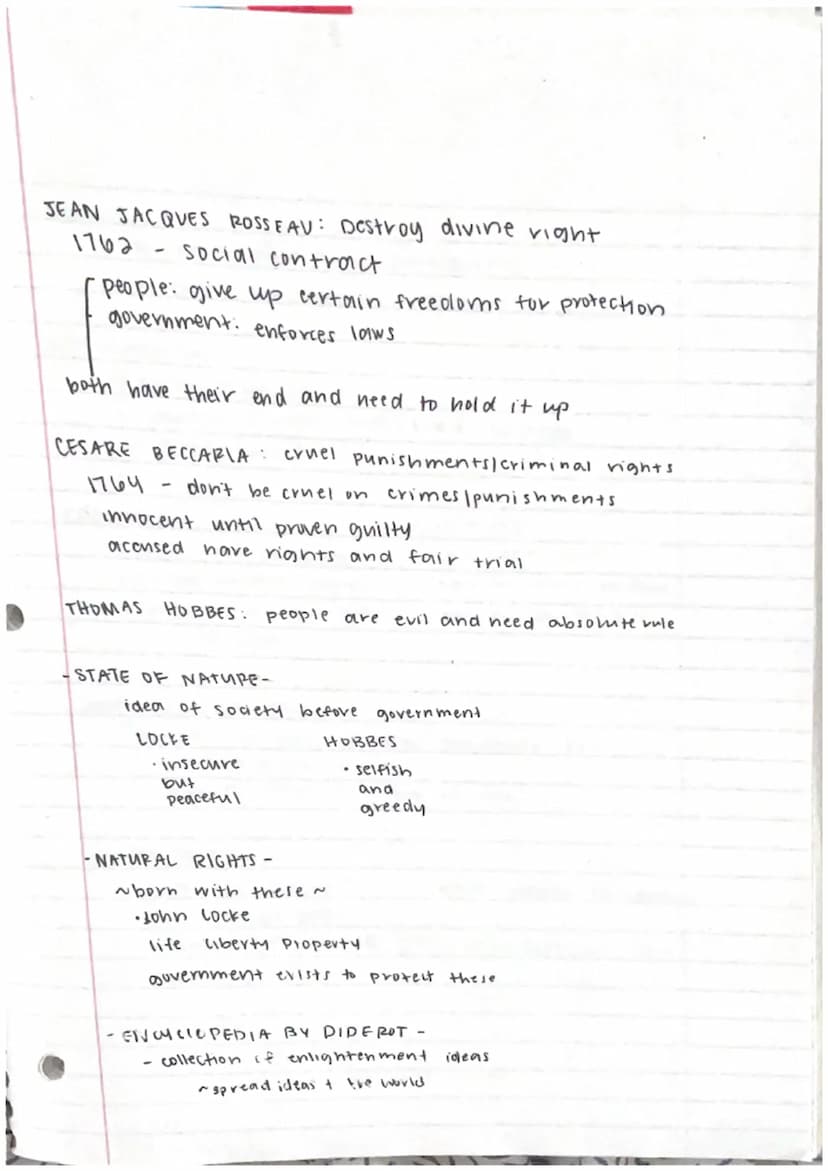 JEAN JACQUES ROSSEAU: Destroy divine right
1762 - social contract
people: give up certain freedoms for protection
government: enforces laws
both have their end and need to hold it up
CESARE BECCARIA: cruel punishments/criminal rights
1764 - don't be cruel on crimes/punishments
innocent until proven guilty
accused have rights and fair trial
THOMAS HOBBES: people are evil and need absolute rule
- STATE OF NATURE -
idea of society before government
LOCKE HOBBES
· insecure · selfish
but and
peaceful greedy
- NATURAL RIGHTS -
~ born with these ~
· John Locke
life liberty Property
government exists to protect these
- ENCYCLEPEDIA BY DIDEROT -
- collection of enlightenment ideas
~ spread ideas + the world